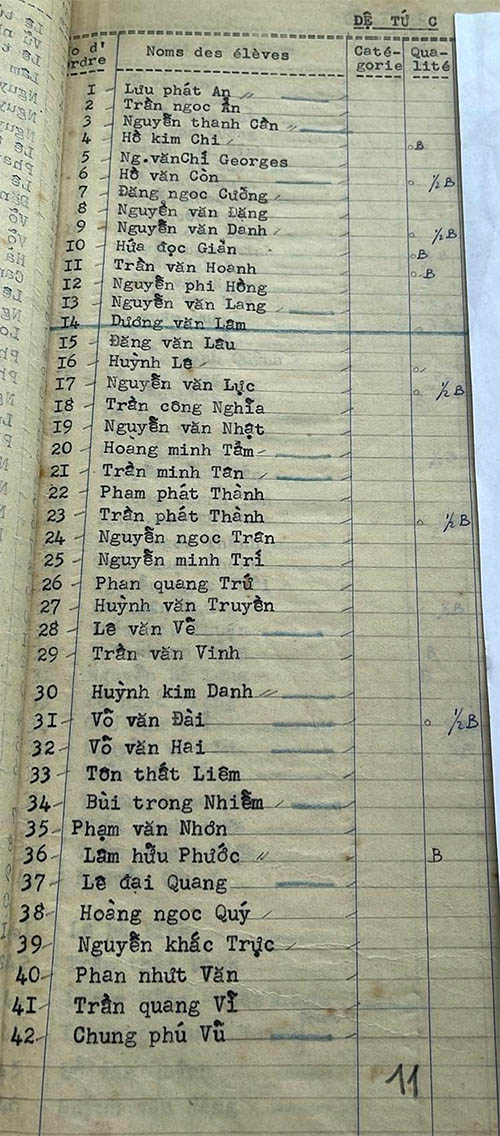 ĐỆ TỨ C
o d' Noms des élèves Caté- Qua-
rdre gorie lité
1 - Lưu phát An
2 - Trần ngọc Ẩn
3 - Nguyễn thanh Cần
4 - Hồ kim Chi B
5 - Ng.văn Chí Georges
6 - Hồ văn Còn ½ B
7 - Đặng ngọc Cường
8 - Nguyễn văn Đặng
9 - Nguyễn văn Danh ½ B
10 - Hứa đọc Giản B
11 - Trần văn Hoanh B
12 - Nguyễn phi Hồng
13 - Nguyễn văn Lang
14 - Dương văn Lam
15 - Đặng văn Lâu
16 - Huỳnh Lê
17 - Nguyễn văn Lực ½ B
18 - Trần công Nghĩa
19 - Nguyễn văn Nhật
20 - Hoàng minh Tâm
21 - Trần minh Tân
22 - Phạm phát Thành
23 - Trần phát Thành ½ B
24 - Nguyễn ngọc Trân
25 - Nguyễn minh Trí
26 - Phan quang Trứ
27 - Huỳnh văn Truyền
28 - Lê văn Vẽ
29 - Trần văn Vinh
30 Huỳnh kim Danh
31 - Võ văn Đài ½ B
32 - Võ văn Hai
33 - Tôn thất Liêm
34 - Bùi trong Nhiễm
35 - Phạm văn Nhơn
36 - Lâm hữu Phước B
37 - Lê đại Quang
38 - Hoàng ngọc Quý
39 - Nguyễn khắc Trực
40 - Phan nhựt Văn
41 - Trần quang Vĩ
42 - Chung phú Vũ
11